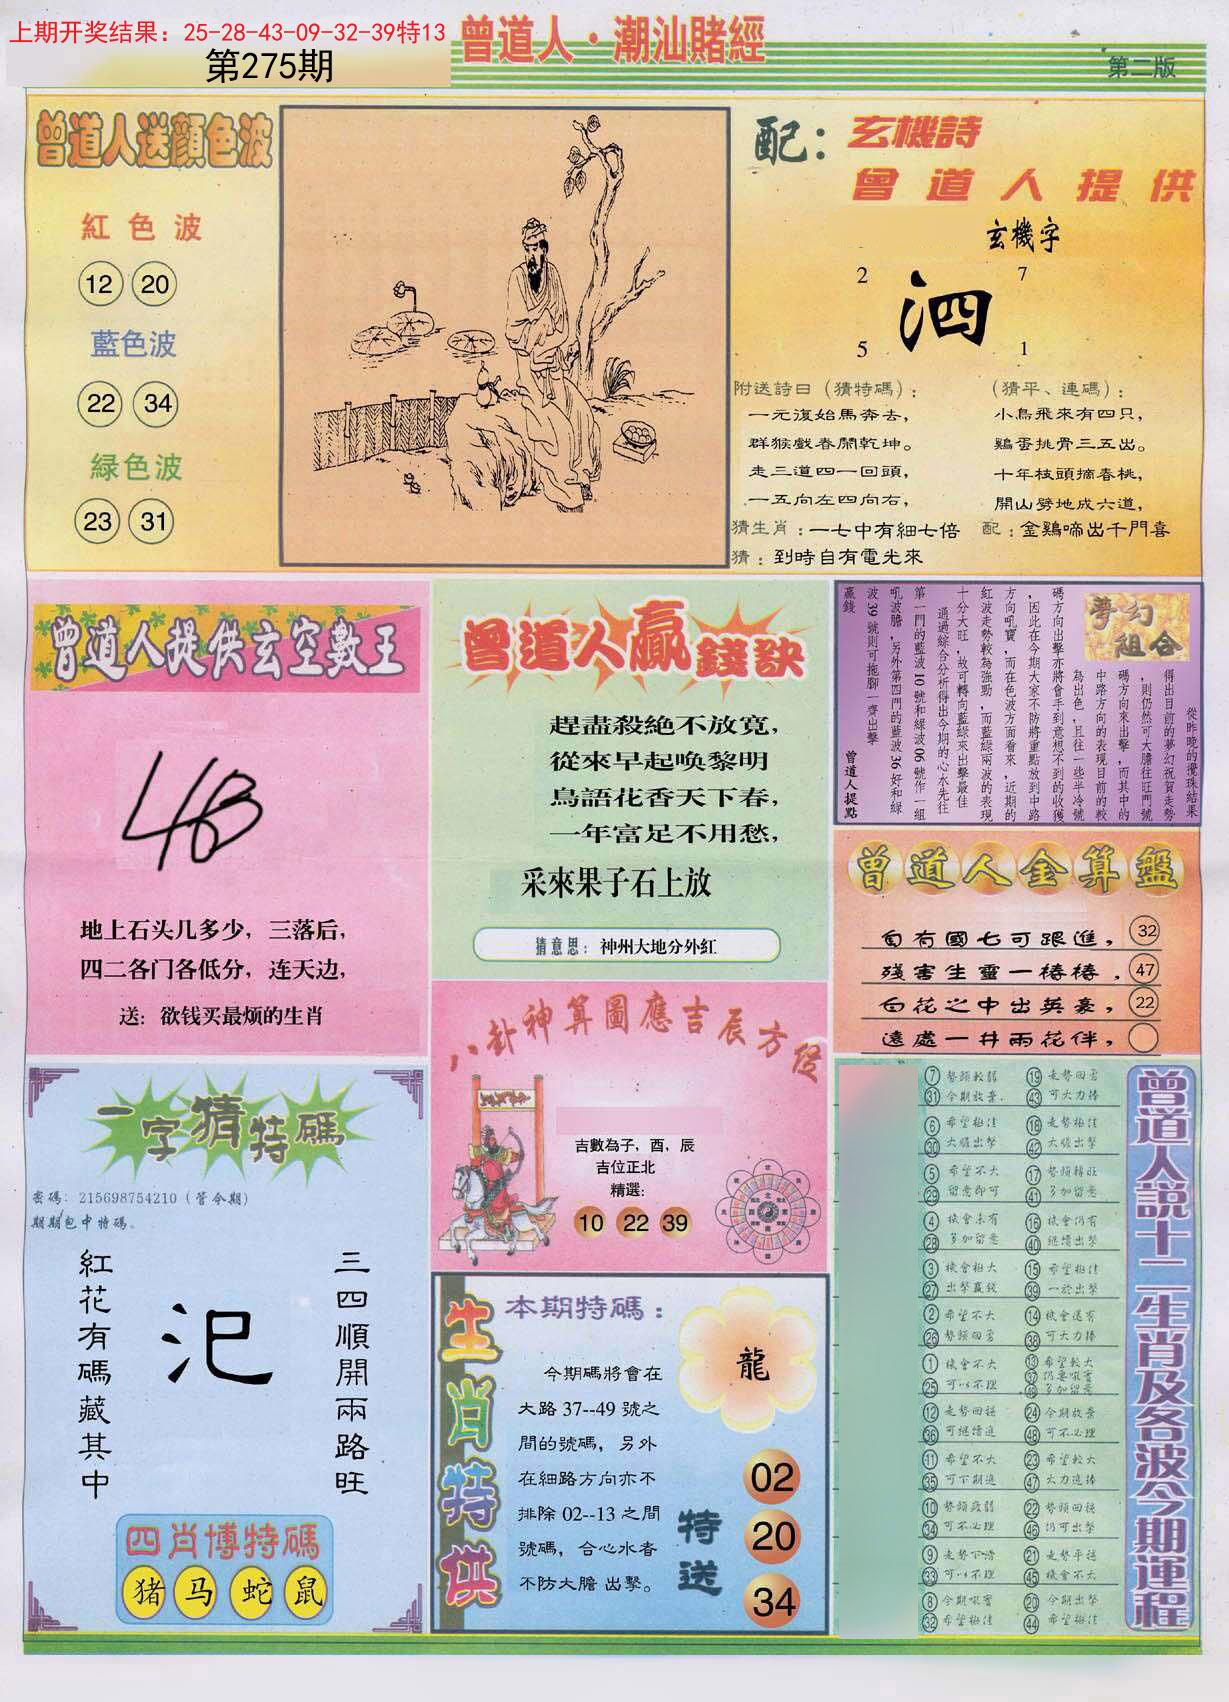 上期开奖结果：25-28-43-09-32-39特13
第275期
曾道人·潮汕賭經
第二版
曾道人送顏色波
紅色波
12 20
藍色波
22 34
緑色波
23 31
配：玄機詩
曾道人提供
玄機字
2 7
泗
5 1
附送詩曰（猜特碼）：
一元復始馬奔去，
群猴戲春鬧乾坤。
走三道四一回頭，
一五向左四向右，
（猜平、連碼）：
小鳥飛來有四只，
鷄蛋挑骨三五出。
十年枝頭摘春桃，
開山劈地成六道，
猜生肖：一七中有細七倍
配：金鷄啼出千門喜
猜：到時自有電光來
曾道人提供玄空數王
地上石头几多少，三落后，
四二各门各低分，连天边，
送：欲钱买最烦的生肖
曾道人贏錢訣
趕盡殺絶不放寬，
從來早起唤黎明
鳥語花香天下春，
一年富足不用愁，
采來果子石上放
猜意思：神州大地分外紅
夢幻組合
從昨晚的攪珠結果
得出目前的夢幻祝賀走勢
，則仍然可大膽往旺門號
碼方向來出擊，而其中的
中路方向的表現目前的較
為出色，且往一些半冷號
碼方向出擊亦將會手到意想不到的收獲
，因此在今期大家不防將重點放到中路
方向吼寶，而在色波方面看來，近期的
紅波走勢較為强勁，而藍緑兩波的表現
十分大旺，故可轉向藍緑來出擊最佳
通過綜合分析得出今期的心水先往
第一門的藍波10號和緑波06號作一組
吼波膽，另外第四門的藍波36好和緑
波39號則可拖脚一齊出擊
贏錢
曾道人提點
曾道人金算盤
自有國七可跟進， 32
殘害生靈一樁樁， 47
白花之中出英豪， 22
遠處一井兩花伴，
八卦神算圖應吉辰方位
吉數為子，酉，辰
吉位正北
精選：
10 22 39
一字猜特碼
密碼：215698754210（管今期）
期期包中特碼。
三四順開兩路旺
汜
紅花有碼藏其中
四肖博特碼
猪 马 蛇 鼠
生肖特供
本期特碼：
龍
今期碼將會在
大路37--49號之
間的號碼，另外
在細路方向亦不
排除02--13之間
號碼，合心水者
不防大膽出擊。
特送
02
20
34
曾道人説十二生肖及各波今期運程
7 勢頭較弱 19 走勢回勇
31 今期放棄. 43 可大力捧
6 希望極佳 18 走勢極佳
30 大膽出擊 42 大膽出擊
5 希望不大 17 勢頭轉旺
29 留意即可 41 多加留意
4 機會未有 16 機會仍有
28 多加留意 40 繼續出擊
3 機會極大 15 希望極佳
27 出擊贏錢 39 一於出擊
2 希望不大 14 機會還有
26 勢頭回勇 38 可大力捧
1 機會不大 13 希望較大
25 可以不理 37 仍要吼實
49 多加留意
12 走勢回穩 24 今期放棄
36 可繼續追 48 可不必理
11 希望不大 23 希望較大
35 可下期追 47 大力追捧
10 勢頭疲弱 22 勢頭回穩
34 可不必理 46 仍可出擊
9 走勢下滑 21 走勢平穩
33 可以不理 45 機會不大
8 今期吼實 20 今期出擊
32 希望極佳 44 希望極佳